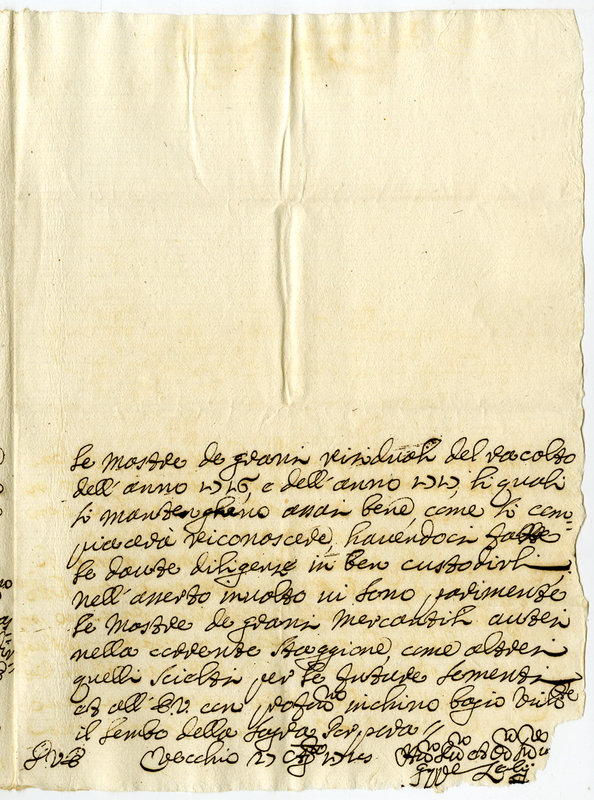 le mostre de grani residuali del racolto
dell'anno 1716, e dell'anno 1717, li quali
si mantengheno assai bene, come si com=
piacerà riconoscere, havendoci fatte
le dovute diligenze in ben custodirli
nell'annesso involto vi sono parimente
le mostre de grani mercantili auten
nella corrente staggione come altresi
quelli scielti per le future sementi
et all'E.V. con profon.mo inchino bagio umil.te
il lembo della sagra Porpora //
Vecchio 27